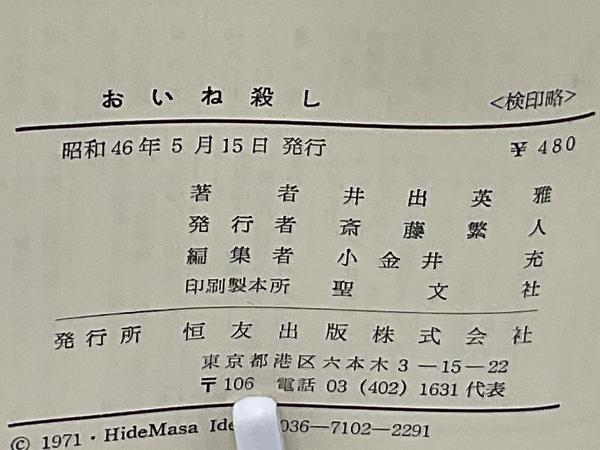 おいね殺し <検印略>
昭和46年5月15日 発行 ¥480
著者 井出英雅
発行者 斎藤繁人
編集者 小金井充
印刷製本所 聖文社
発行所 恒友出版株式会社
東京都港区六本木3―15―22
〒106 電話 03 (402) 1631 代表
© 1971・HideMasa 036―7102―2291